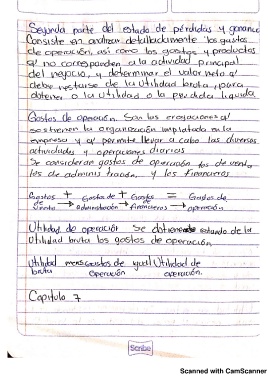 Segunda parte del estado de pérdidas y ganancia
Consiste en analizar detalladamente los gastos
de operación, así como los gastos y productos
q' no corresponden a la actividad principal
del negocio, y determinar el valor neto q'
debe restarse de la Utilidad bruta, para
obtener o la Utilidad o la perdida liquida
Gastos de operación. Son las erogaciones q'
sostienen la organización implantada en la
empresa y q' permite llevar a cabo las diversas
actividades y operaciones diarias
Se consideran gastos de operación los de venta
los de administración, y los financieros
Gastos + Gastos de + Gastos = Gastos de
de venta → administración → financieros → operación
Utilidad de operación Se obtiene restando de la
Utilidad bruta los gastos de operación.
Utilidad menos gastos de igual Utilidad de
bruta operación operación.
Capitulo 7
Scribe
Scanned with CamScanner